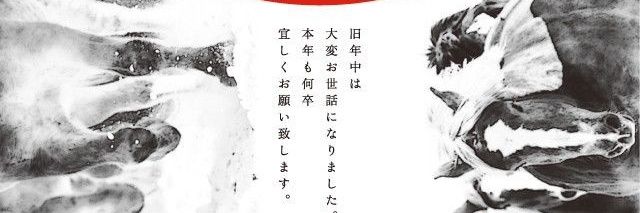 旧年中は
大変お世話になりました。
本年も何卒
宜しくお願い致します。